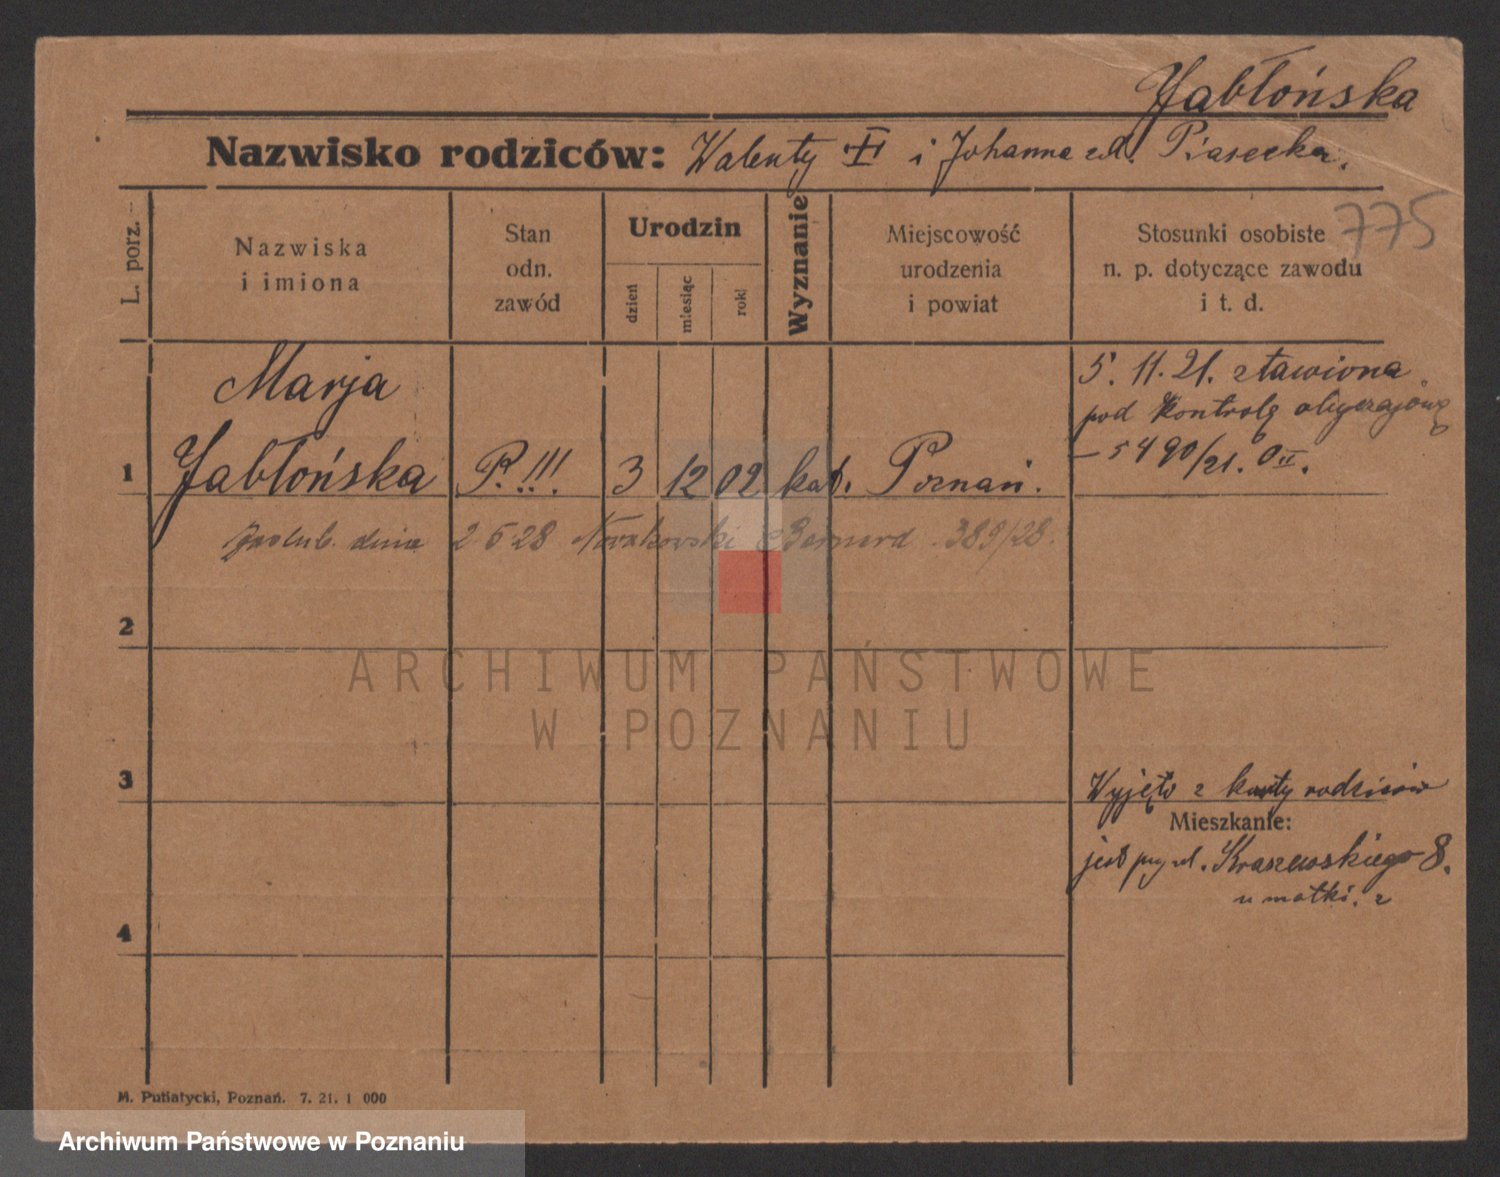 Jabłońska
Nazwisko rodziców: Walenty † i Johanna zd. Piasecka.
775
L. porz.
Nazwiska
i imiona
Stan
odn.
zawód
Urodzin
dzień
miesiąc
rok
Wyznanie
Miejscowość
urodzenia
i powiat
Stosunki osobiste
n. p. dotyczące zawodu
i t. d.
Marja
5. 11. 21. stawiona
pod kontrolę obyczajową
1 Jabłońska P.!!! 3 12 02 kat. Poznań.
– 5490/21. O II.
zaślub. dnia 2 6 28 Nowakowski Bernard 389/28.
2
ARCHIWUM PAŃSTWOWE
W POZNANIU
3
Wyjęto z karty rodziców
Mieszkanie:
jest przy ul. Kraszewskiego 8.
u matki.
4
M. Putiatycki, Poznań. 7. 21. 1 000
Archiwum Państwowe w Poznaniu